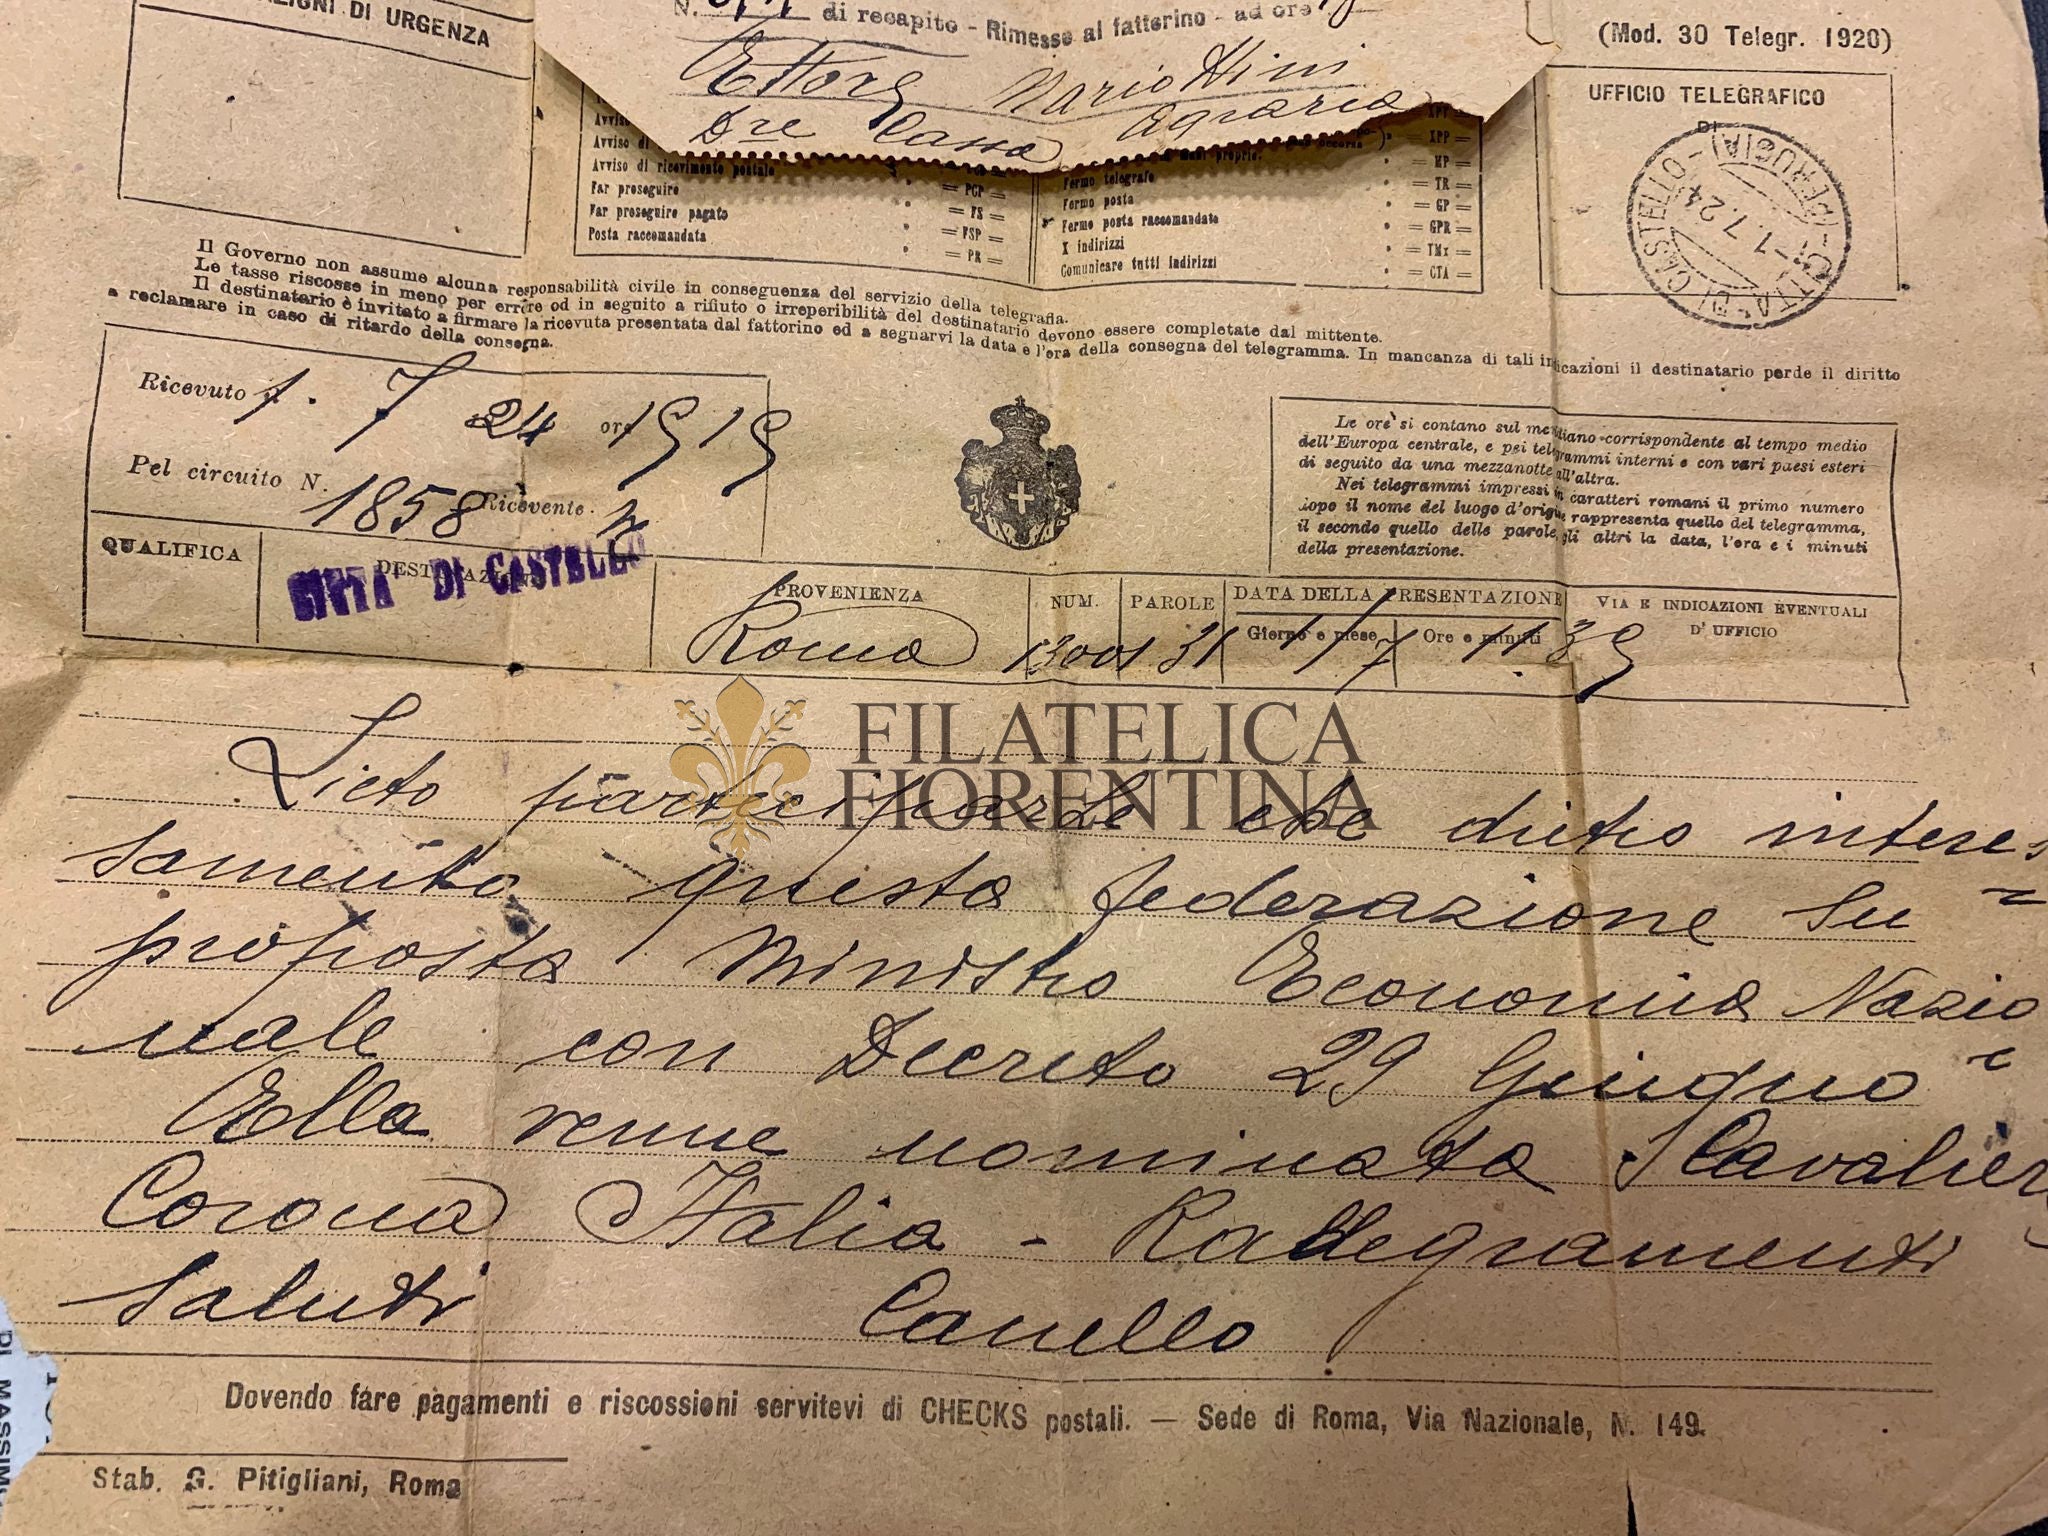 DI URGENZA
N. di recapito - Rimesse al fattorino - ad ore
Ettore Mariottini
Dre Cassa Agraria
(Mod. 30 Telegr. 1920)
UFFICIO TELEGRAFICO
DI
CITTA' DI CASTELLO - (PERUGIA)
1.7.24
Avviso di
Avviso di ricevimento postale
Far proseguire = PCP =
Far proseguire pagato = FS =
Posta raccomandata = FSP =
= PR =
= XPP =
mani proprie. = MP =
Fermo telegrafo = TR =
Fermo posta = GP =
Fermo posta raccomandata = GPR =
X indirizzi = TMx =
Comunicare tutti indirizzi = CTA =
Il Governo non assume alcuna responsabilità civile in conseguenza del servizio della telegrafia.
Le tasse riscosse in meno per errore od in seguito a rifiuto o irreperibilità del destinatario devono essere completate dal mittente.
Il destinatario è invitato a firmare la ricevuta presentata dal fattorino ed a segnarvi la data e l'ora della consegna del telegramma. In mancanza di tali indicazioni il destinatario perde il diritto
a reclamare in caso di ritardo della consegna.
Ricevuto il 1. 7 24 ore 1515
Pel circuito N. 1858 Ricevente
Le ore si contano sul meridiano corrispondente al tempo medio
dell'Europa centrale, e pei telegrammi interni e con vari paesi esteri
di seguito da una mezzanotte all'altra.
Nei telegrammi impressi in caratteri romani il primo numero
dopo il nome del luogo d'origine rappresenta quello del telegramma,
il secondo quello delle parole, gli altri la data, l'ora e i minuti
della presentazione.
QUALIFICA DESTINAZIONE PROVENIENZA NUM. PAROLE DATA DELLA PRESENTAZIONE VIA E INDICAZIONI EVENTUALI
D'UFFICIO
Giorno e mese Ore e minuti
CITTA' DI CASTELLO Roma 13001 31 1/7 11 35
FILATELICA
FIORENTINA
Lieto parteciparle che dietro interes
samento questa federazione su
proposta Ministro Economia Nazio
nale con Decreto 29 Giugno
Ella venne nominata Cavaliere
Corona Italia - Rallegramenti
Saluti Canello
Dovendo fare pagamenti e riscossioni servitevi di CHECKS postali. — Sede di Roma, Via Nazionale, N. 149.
Stab. G. Pitigliani, Roma
DI MASSIM